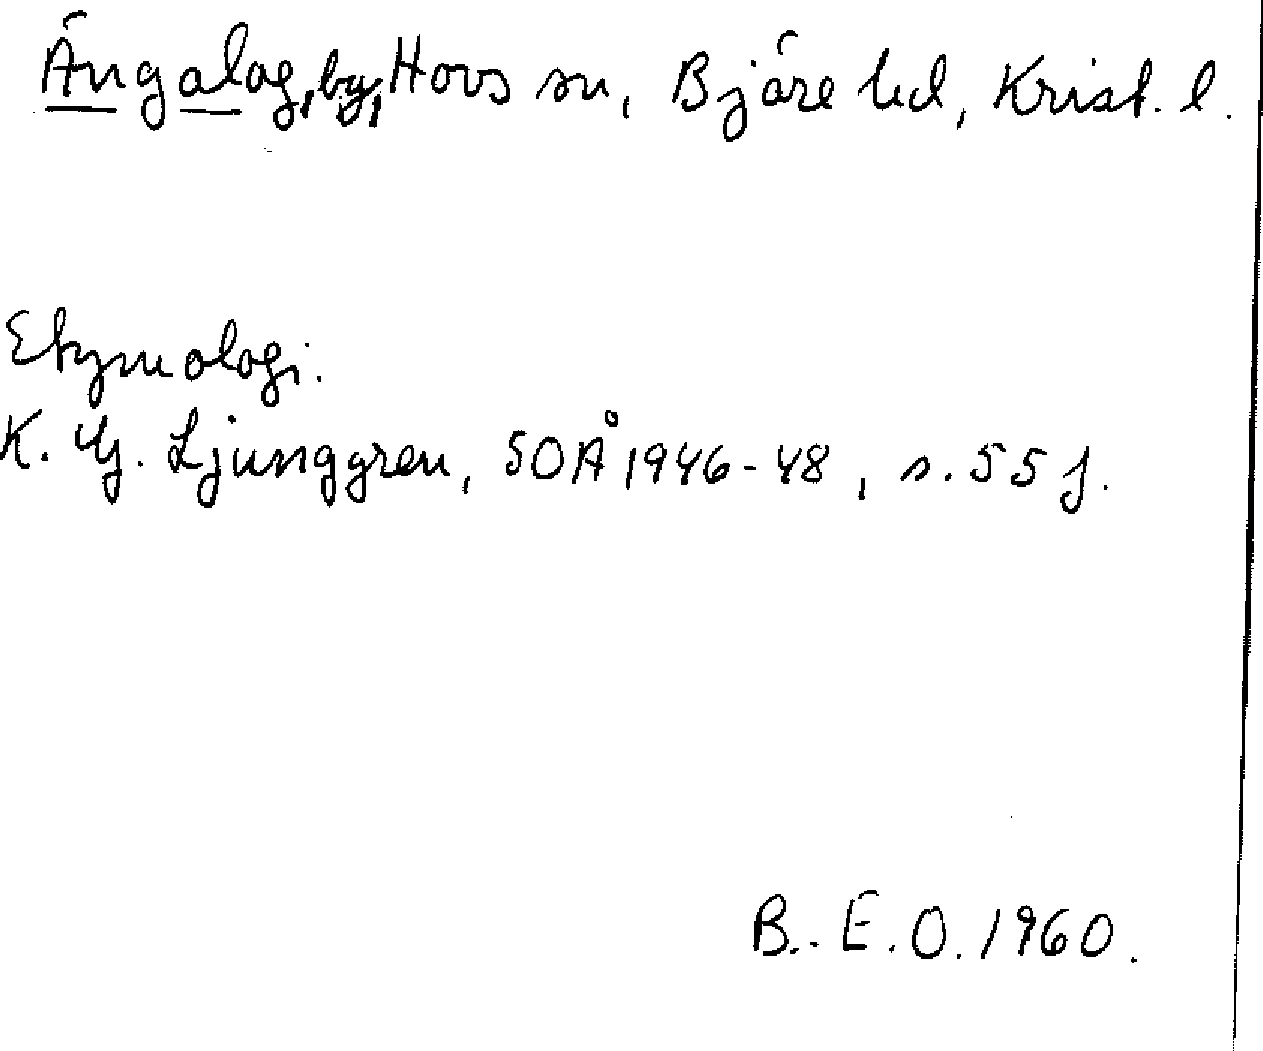 Ängalag, by, Hovs sn, Bjäre hd, Krist. l.
Etymologi.
K. G. Ljunggren, SOÅ 1946-48, s. 55 f.
B. E. O. 1960.